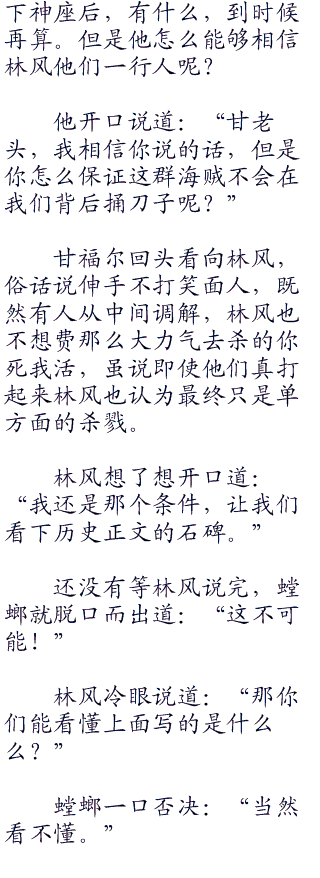 下神座后，有什么，到时候
再算。但是他怎么能够相信
林风他们一行人呢？
他开口说道：“甘老
头，我相信你说的话，但是
你怎么保证这群海贼不会在
我们背后捅刀子呢？”
甘福尔回头看向林风，
俗话说伸手不打笑面人，既
然有人从中间调解，林风也
不想费那么大力气去杀的你
死我活，虽说即使他们真打
起来林风也认为最终只是单
方面的杀戮。
林风想了想开口道：
“我还是那个条件，让我们
看下历史正文的石碑。”
还没有等林风说完，螳
螂就脱口而出道：“这不可
能！”
林风冷眼说道：“那你
们能看懂上面写的是什么
么？”
螳螂一口否决：“当然
看不懂。”